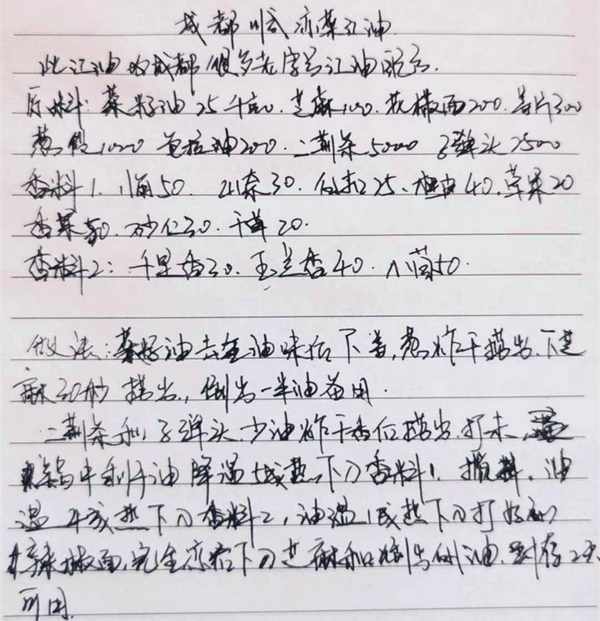 成都川式凉菜红油
此红油为成都很多老字号红油配方.
原材料: 菜籽油25千克. 芝麻100. 花椒面200. 姜片300
葱段1000 油200. 二荆条5000 子弹头2500
香料1. 小茴50. 山奈30. 白扣25、桂皮40. 草果20
香果50. 砂仁30. 干草20.
香料2: 千里香30. 玉兰香40. 八茴50.
做法: 菜籽油去生油味后下姜, 葱炸干捞出. 下芝
麻30秒 捞出., 倒出一半油备用.
二荆条和子弹头. 少油炸干香后捞出. 打末.
锅中剩下油 降温 成热. 下入香料1. 油
温 成热下入香料2, 油温1成热下入打好的
辣椒面, 完全 后下入芝麻和 倒出 油. 存2天
可用.